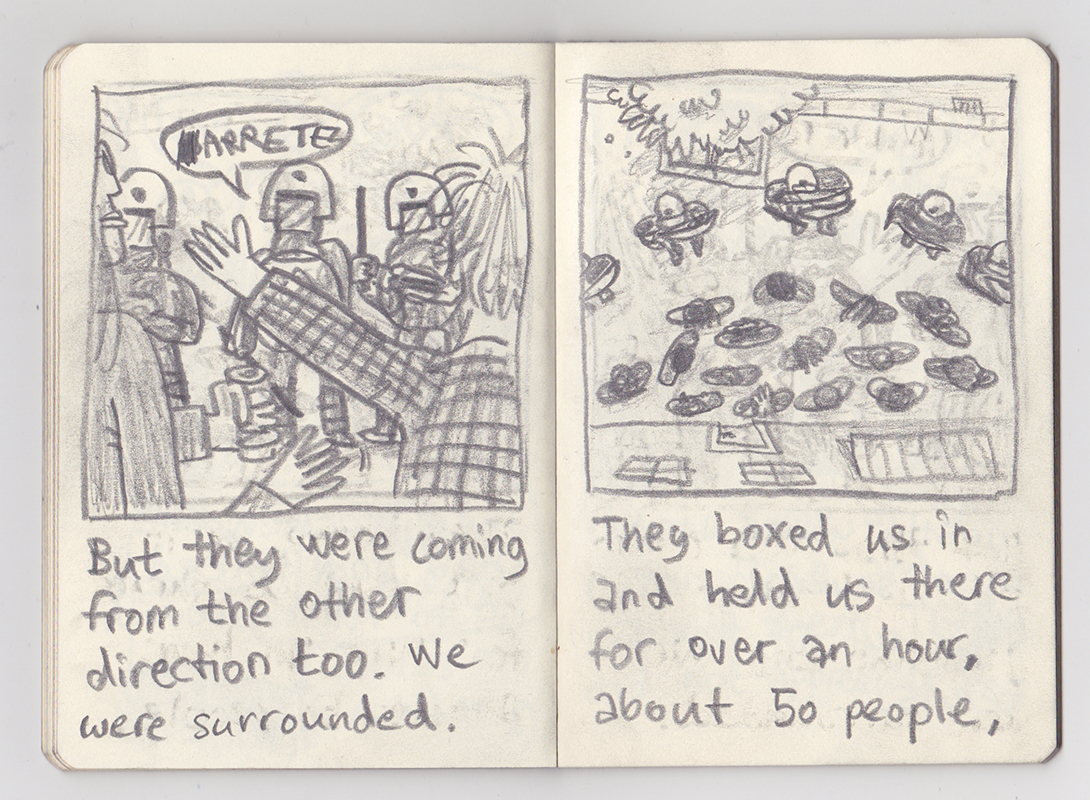 ARRETE
But they were coming
from the other
direction too. We
were surrounded.
They boxed us in
and held us there
for over an hour,
about 50 people,